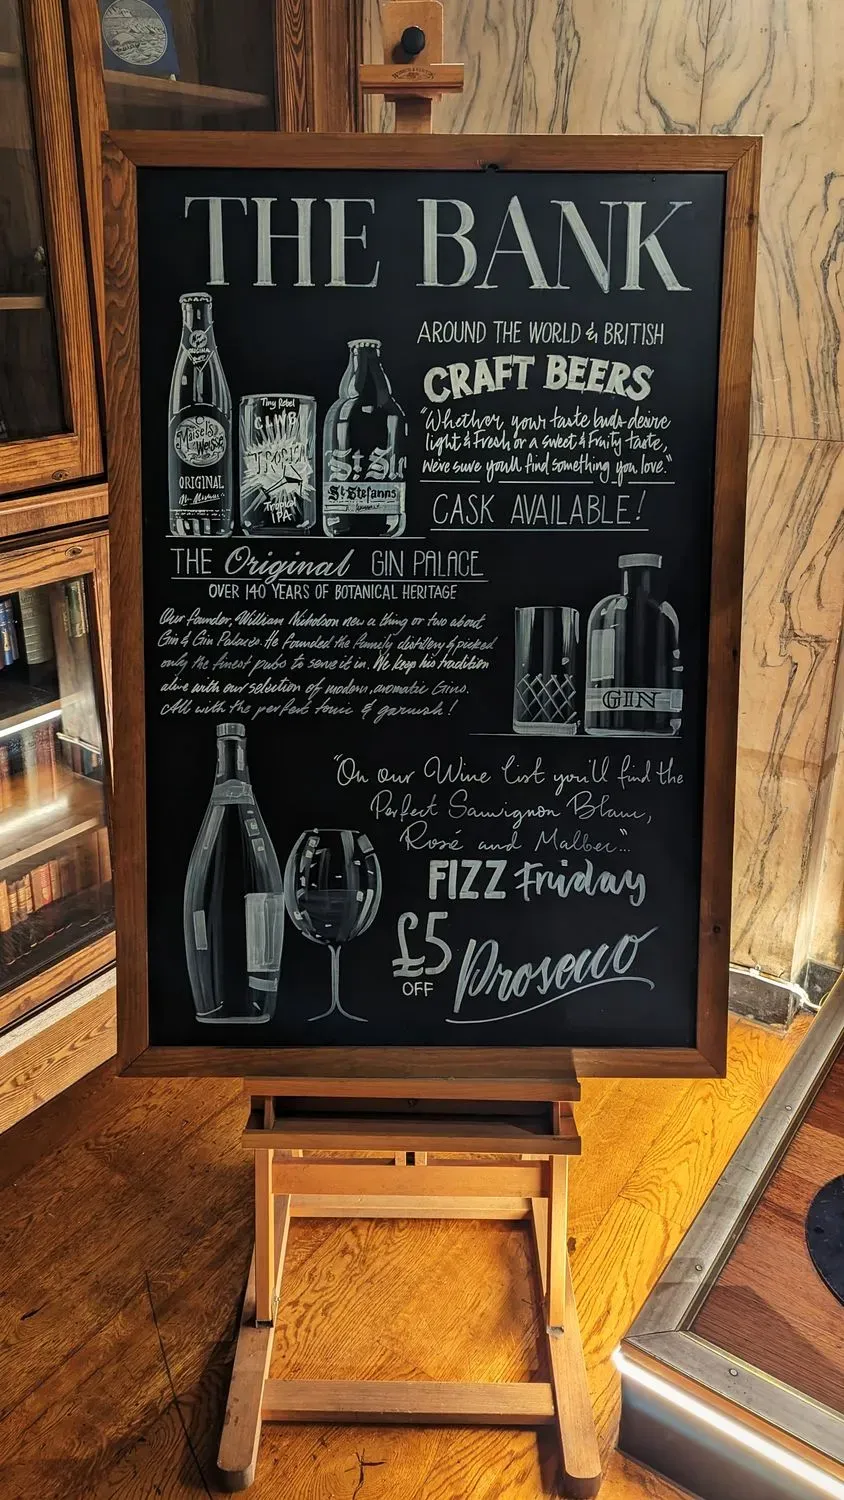 THE BANK
AROUND THE WORLD & BRITISH
CRAFT BEERS
"Whether your taste buds desire
light & Fresh or a sweet & Fruity taste,
we're sure you'll find something you love."
CASK AVAILABLE!
ORIGINAL
Maisel's
Weisse
ORIGINAL
Tiny Rebel
CLWB
TROPI
Tropical
IPA
St. Ste
St Stefanus
THE Original GIN PALACE
OVER 140 YEARS OF BOTANICAL HERITAGE
Our founder, William Nicholson new a thing or two about
Gin & Gin Palaces. He founded the family distillery & picked
only the finest pubs to serve it in. We keep his tradition
alive with our selection of modern, aromatic Gins.
All with the perfect tonic & garnish!
GIN
"On our Wine list you'll find the
Perfect Sauvignon Blanc,
Rosé and Malbec"...
FIZZ Friday
£5
OFF
Prosecco